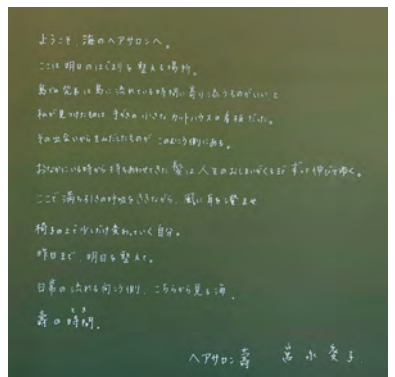 ようこそ、海のヘアサロンへ。
ここは明日のはじまりを整える場所。
島での発表は島に流れている時間に寄り添うものがいい、と
私が見つけたのは 手がきの小さなカットハウスの看板だった。
その出会いから生みだしたものが このむこう側にある。
おなかにいる時から 持ちあわせてきた 髪は 人生のおしまいがくるまで ずっと伸びてゆく。
ここで 満ち引きの呼吸をききながら、風に耳を澄ませ
椅子の上で少しだけ変わっていく自分。
昨日まで、明日を整えて。
日常の流れる向こう側、こちらから見る海、
壽の時間。
とき
ヘアサロン壽 宮永愛子